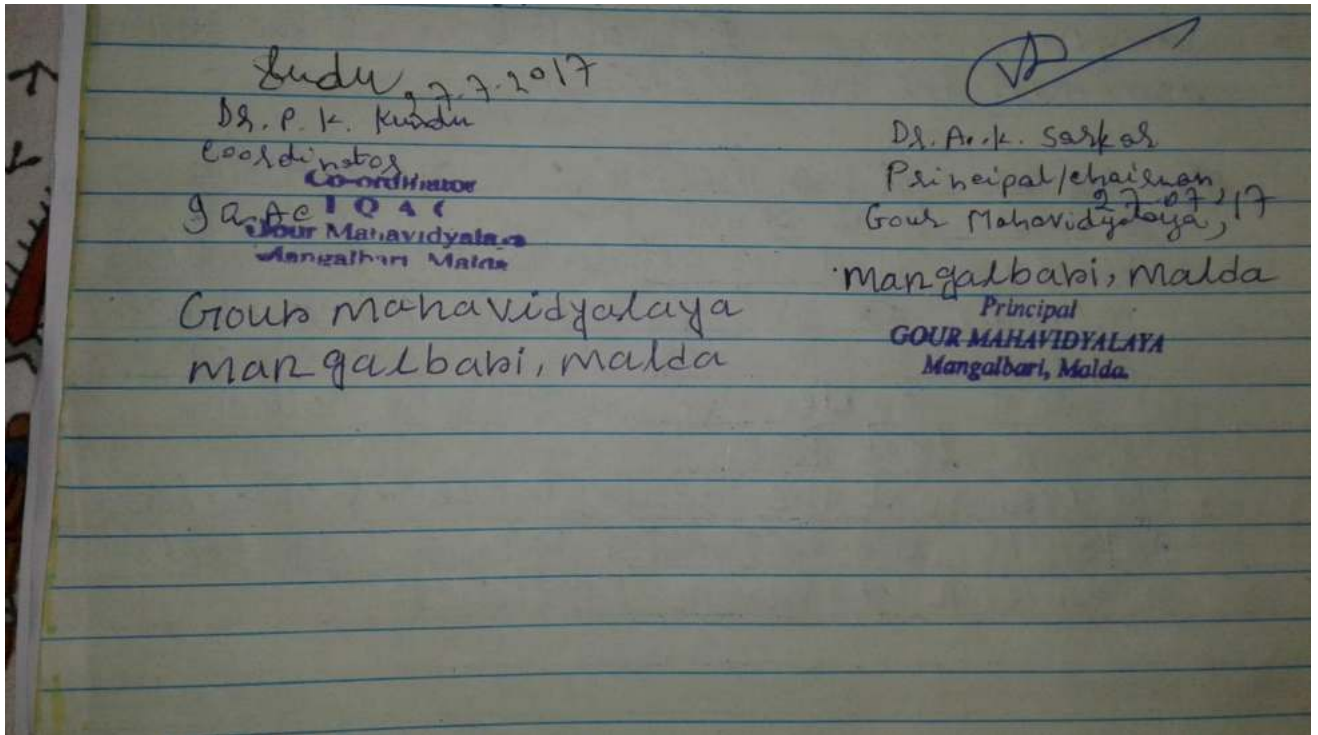 27.7.2017
Dr. P. K. Kundu
Coordinator
Co-ordinator
IQAC
IQAC
Gour Mahavidyalaya
Mangalbari Malda
Gour Mahavidyalaya
Mangalbari, Malda
Dr. A. K. Sarkar
Principal/Chairman,
27.07.17
Gour Mahavidyalaya,
Mangalbari, Malda
Principal
GOUR MAHAVIDYALAYA
Mangalbari, Malda.